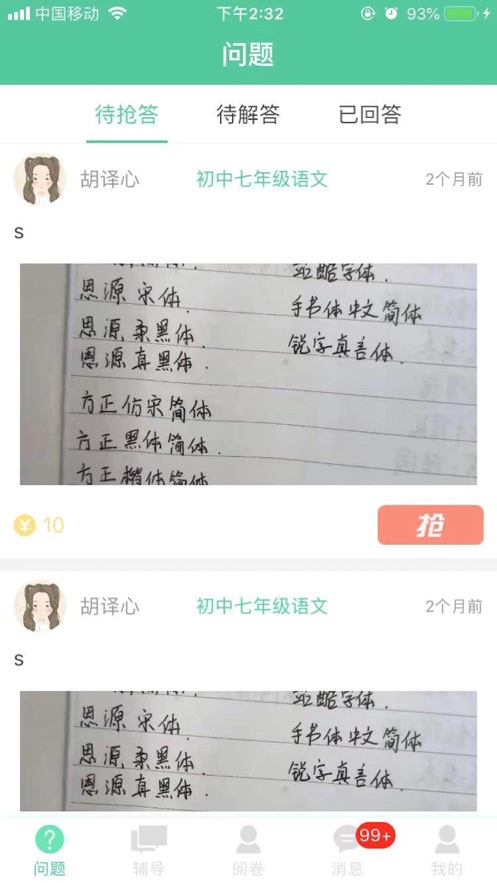 中国移动 下午2:32 93%
问题
待抢答 待解答 已回答
胡译心 初中七年级语文 2个月前
s
站酷字体.
思源 宋体. 手书体 中文 简体
思源 柔黑体. 锐字真言体.
思源 真黑体.
方正 仿宋 简体
方正 黑体 简体.
方正 楷体 简体
¥ 10 抢
胡译心 初中七年级语文 2个月前
s
站酷字体.
思源 宋体. 手书体 中文 简体
思源 柔黑体. 锐字真言体.
思源 真黑体.
99+
问题 辅导 阅卷 消息 我的